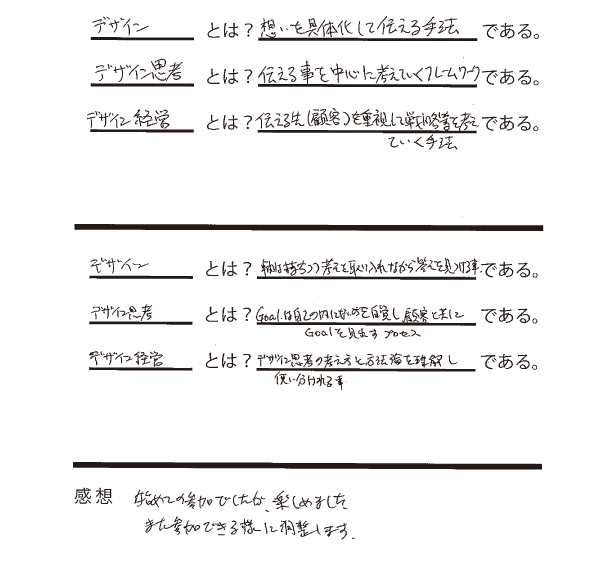 デザイン とは？想いを具体化して伝える手法 である。
デザイン思考 とは？伝える事を中心に考えていくフレームワーク である。
デザイン経営 とは？伝える先(顧客)を重視して戦略等を考え である。
ていく手法
デザイン とは？軸は持ちつつ考えを取り入れながら答えを見つける事 である。
デザイン思考 とは？Goalは自己の内にないのを自覚し顧客と共に である。
Goalを見出すプロセス
デザイン経営 とは？デザイン思考の考え方と方法論を理解し である。
使い分けれる事
感想 始めての参加でしたが、楽しめました
また参加できる様に調整します.